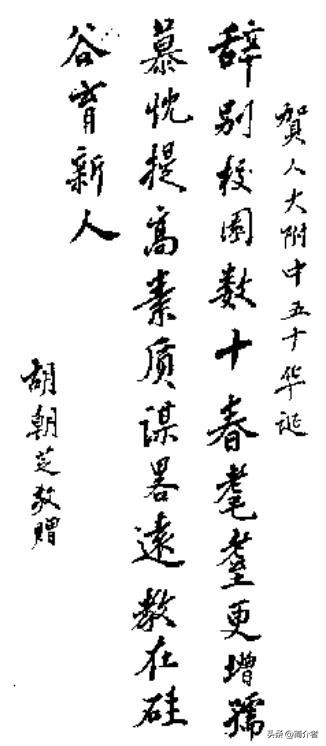 賀人大附中五十华诞
辞别校園数十春耄耋更增孺
慕忱提高素质谋畧遠教在硅
谷育新人
胡朝芝敬赠
头条